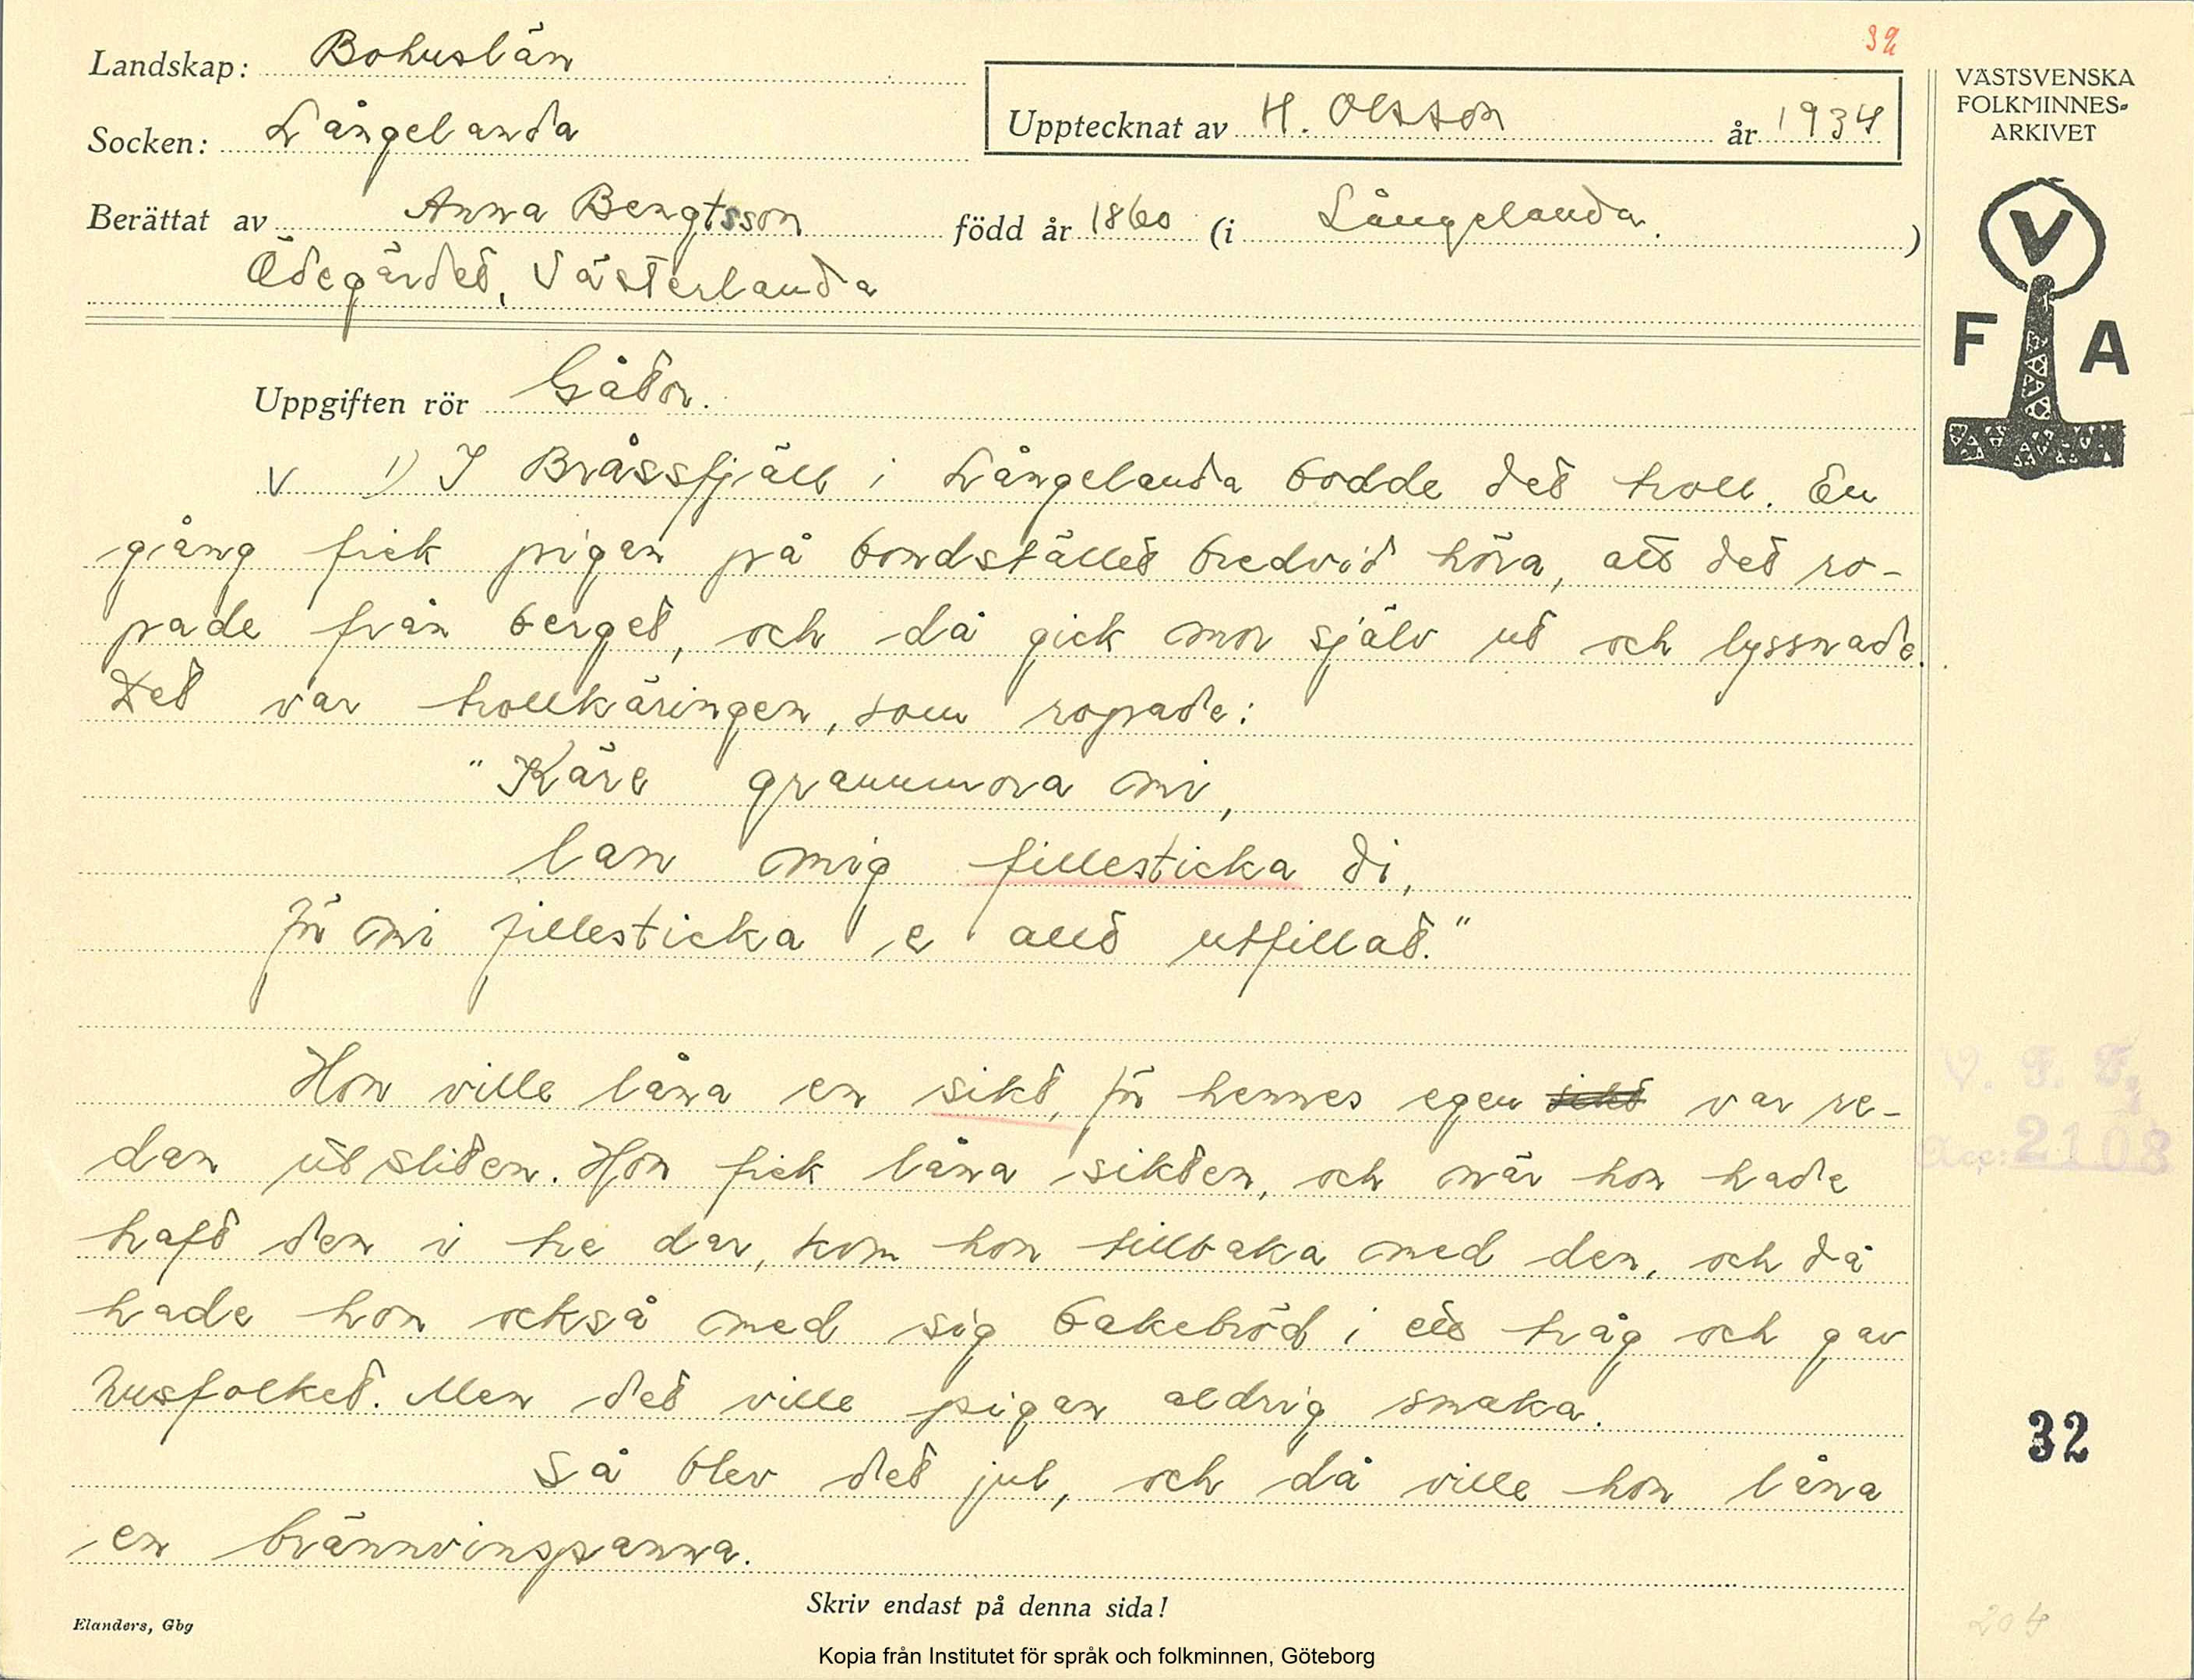 32
Landskap: Bohuslän
VÄSTSVENSKA
FOLKMINNES-
ARKIVET
Upptecknat av H. Olsson år 1934
Socken: Långelanda
Berättat av Anna Bengtsson född år 1860 (i Långelanda.)
Ödegärdet, Västerlanda
V
F A
Uppgiften rör Gåtor.
V 1) I Bråssfjäll i Långelanda bodde det troll. En
gång fick pigan på bondstället bredvid höra, att det ro-
pade från berget, och då gick mor själv ut och lyssnade.
Det var trollkäringen, som ropade:
"Käre grammora mi,
lan mig fillesticka di,
för mi fillesticka e allt utfillat."
Hon ville låna en sikt, för hennes egen sikt var re-
dan utsliten. Hon fick låna sikten, och när hon hade
haft den i tre dar, kom hon tillbaka med den, och då
hade hon också med sig bakebröd i ett tråg och gav
husfolket. Men det ville pigan aldrig smaka.
Så blev det jul, och då ville hon låna
en brännvinspanna.
V. F. F.
Acc: 2108
32
Skriv endast på denna sida!
Elanders, Gbg
204
Kopia från Institutet för språk och folkminnen, Göteborg